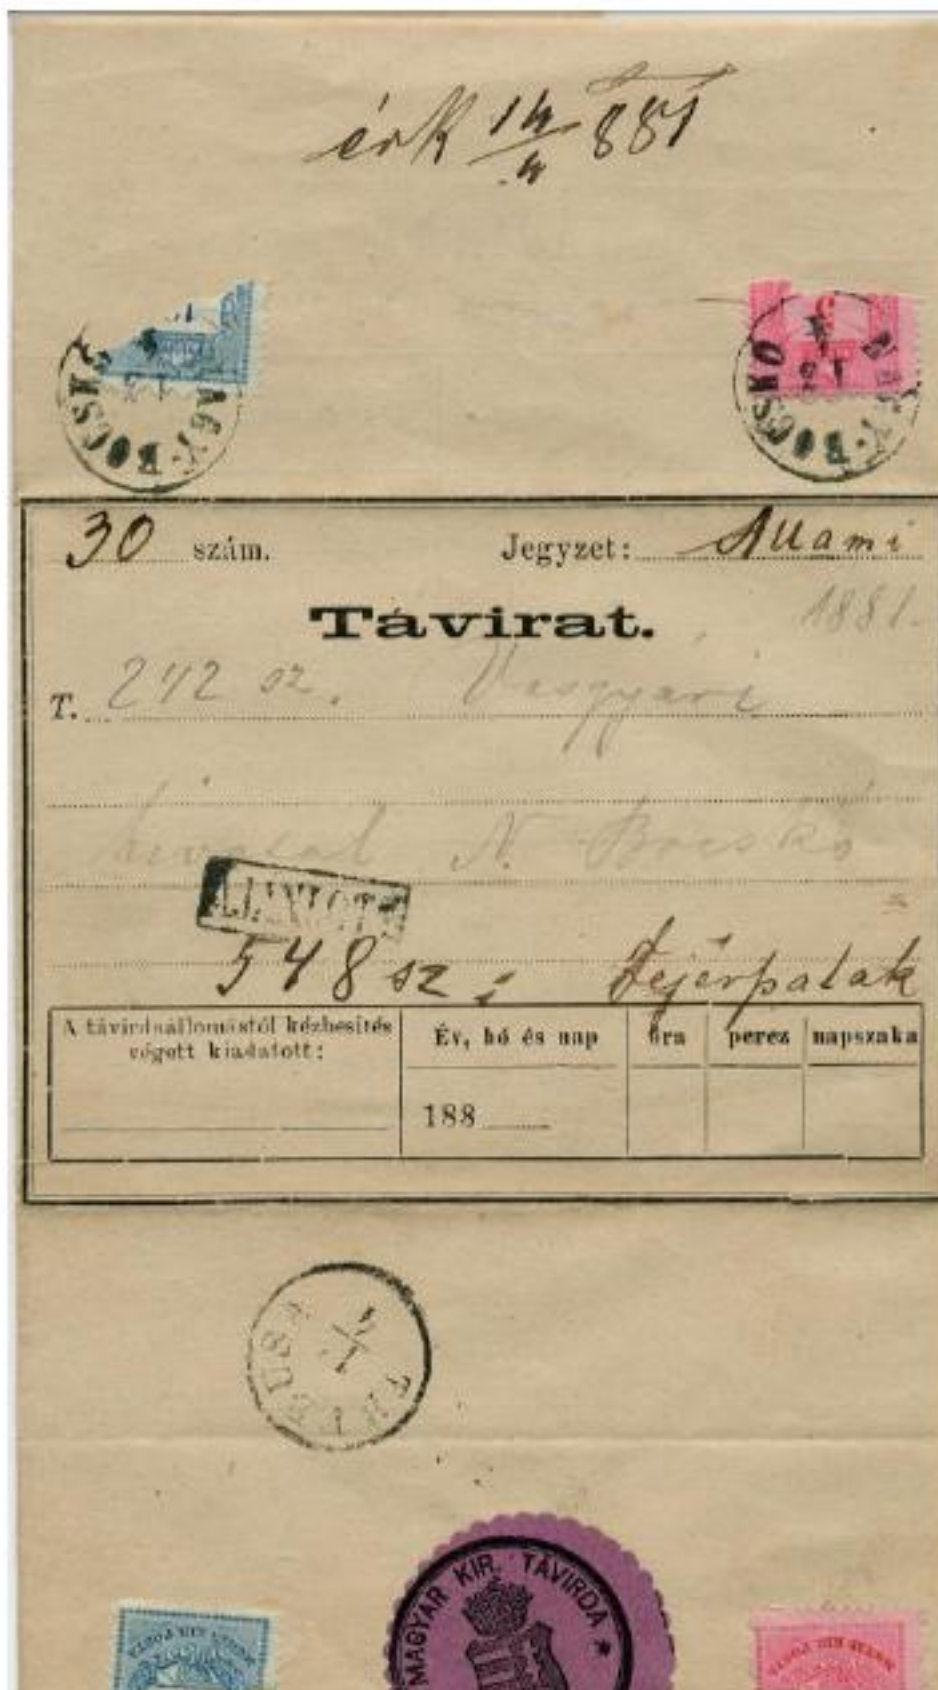 érk 14/4 881
NAGY-BOCSKÓ
NAGY-BOCSKO
30 szám. Jegyzet: Állami
Távirat. 1881.
T. 242 sz. Vasgyári
hivatal N. Bocskó
AJÁNLOTT
548 sz: Fejérpatak
A távirdaállomástól kézbesítés
végett kiadatott:
Év, hó és nap óra percz napszaka
188
TREBUSA
MAGYAR KIR. TÁVIRDA *
MAGYAR KIR. POSTA
MAGYAR KIR. POSTA